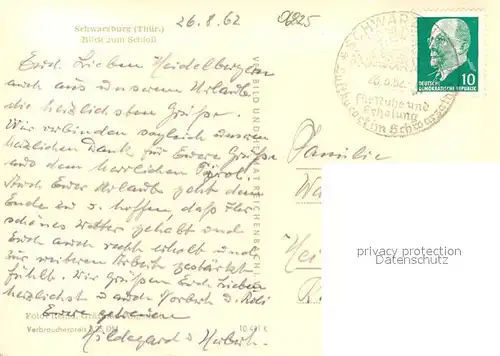 Schwarzburg (Thür.)
Blick zum Schloß
26.8.62
0225
SCHWARZ
26.8.62
Für Ruhe und
Erholung
im Schwarzatal
DEUTSCHE
DEMOKRATISCHE REPUBLIK
10
Euch Lieben Heidelbergern
auch aus unserem Urlaub
die herzlichsten Grüße.
Wir verbinden zugleich unseren
herzlichen Dank für Euere Grüße
aus dem herrlichen Tirol.
Auch Euer Urlaub geht dem
Ende zu u. hoffen, daß Ihr
schönes Wetter gehabt und
Euch auch recht erholt und
zur weiteren Arbeit gestärkt
fühlt. Wir grüßen Euch Lieben
herzlichst u. auch Norbert u.
Hildegard u. Herbert.
VEB BILD UND HEIMAT REICHENBACH I. V.
Familie
Hei
privacy protection
watermark
Foto:
Verbraucherpreis DM